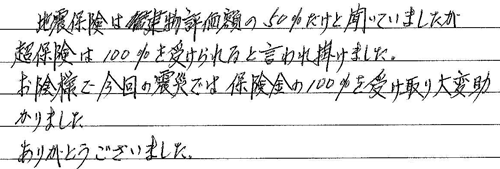 地震保険は建物評価額の50%だけと聞いていましたが
超保険は100%を受けられると言われ掛けました。
お陰様で今回の震災では保険金の100%を受け取り大変助
かりました
ありがとうございました。